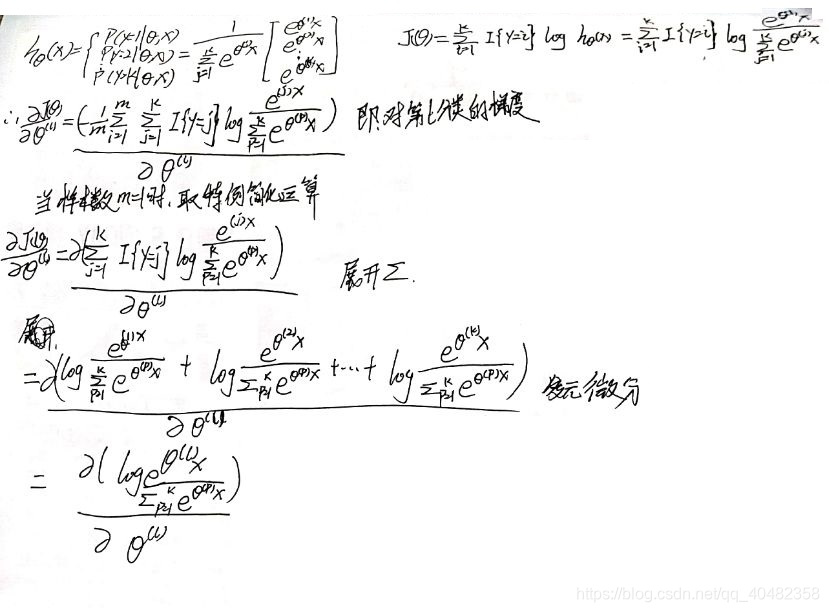 h_θ(x) = { P(y=1|θ,x) P(y=2|θ,x) ⋮ P(y=k|θ,x) = 1 / Σ_{j=1}^{k} e^{θ^{(j)}x} [ e^{θ^{(1)}x} e^{θ^{(2)}x} ⋮ e^{θ^{(k)}x} ]
J(θ) = Σ_{i=1}^{k} I{y=i} log h_θ(x) = Σ_{i=1}^{k} I{y=i} log e^{θ^{(i)}x} / Σ_{j=1}^{k} e^{θ^{(j)}x}
∴ ∂J(θ)/∂θ^{(l)} = ∂(-1/m Σ_{i=1}^{m} Σ_{j=1}^{k} I{y=j} log e^{(j)x} / Σ_{p=1}^{k} e^{θ^{(p)}x}) / ∂θ^{(l)} 即对第l分类的梯度
当样本数m=1时,取特例简化运算
∂J(θ)/∂θ^{(l)} = ∂(Σ_{j=1}^{k} I{y=j} log e^{(j)x} / Σ_{p=1}^{k} e^{θ^{(p)}x}) / ∂θ^{(l)} 展开Σ.
展开.
= ∂(log e^{θ^{(1)}x} / Σ_{p=1}^{k} e^{θ^{(p)}x} + log e^{θ^{(2)}x} / Σ_{p=1}^{k} e^{θ^{(p)}x} + ⋯ + log e^{θ^{(k)}x} / Σ_{p=1}^{k} e^{θ^{(p)}x}) / ∂θ^{(l)} 多元微分
= ∂(log e^{θ^{(l)}x} / Σ_{p=1}^{k} e^{θ^{(p)}x}) / ∂θ^{(l)}
https://blog.csdn.net/qq_40482358